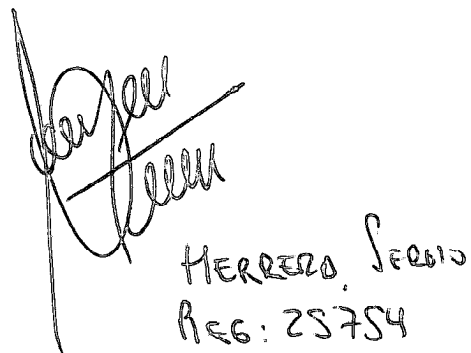 HERRERO, SERGIO
REG: 25754